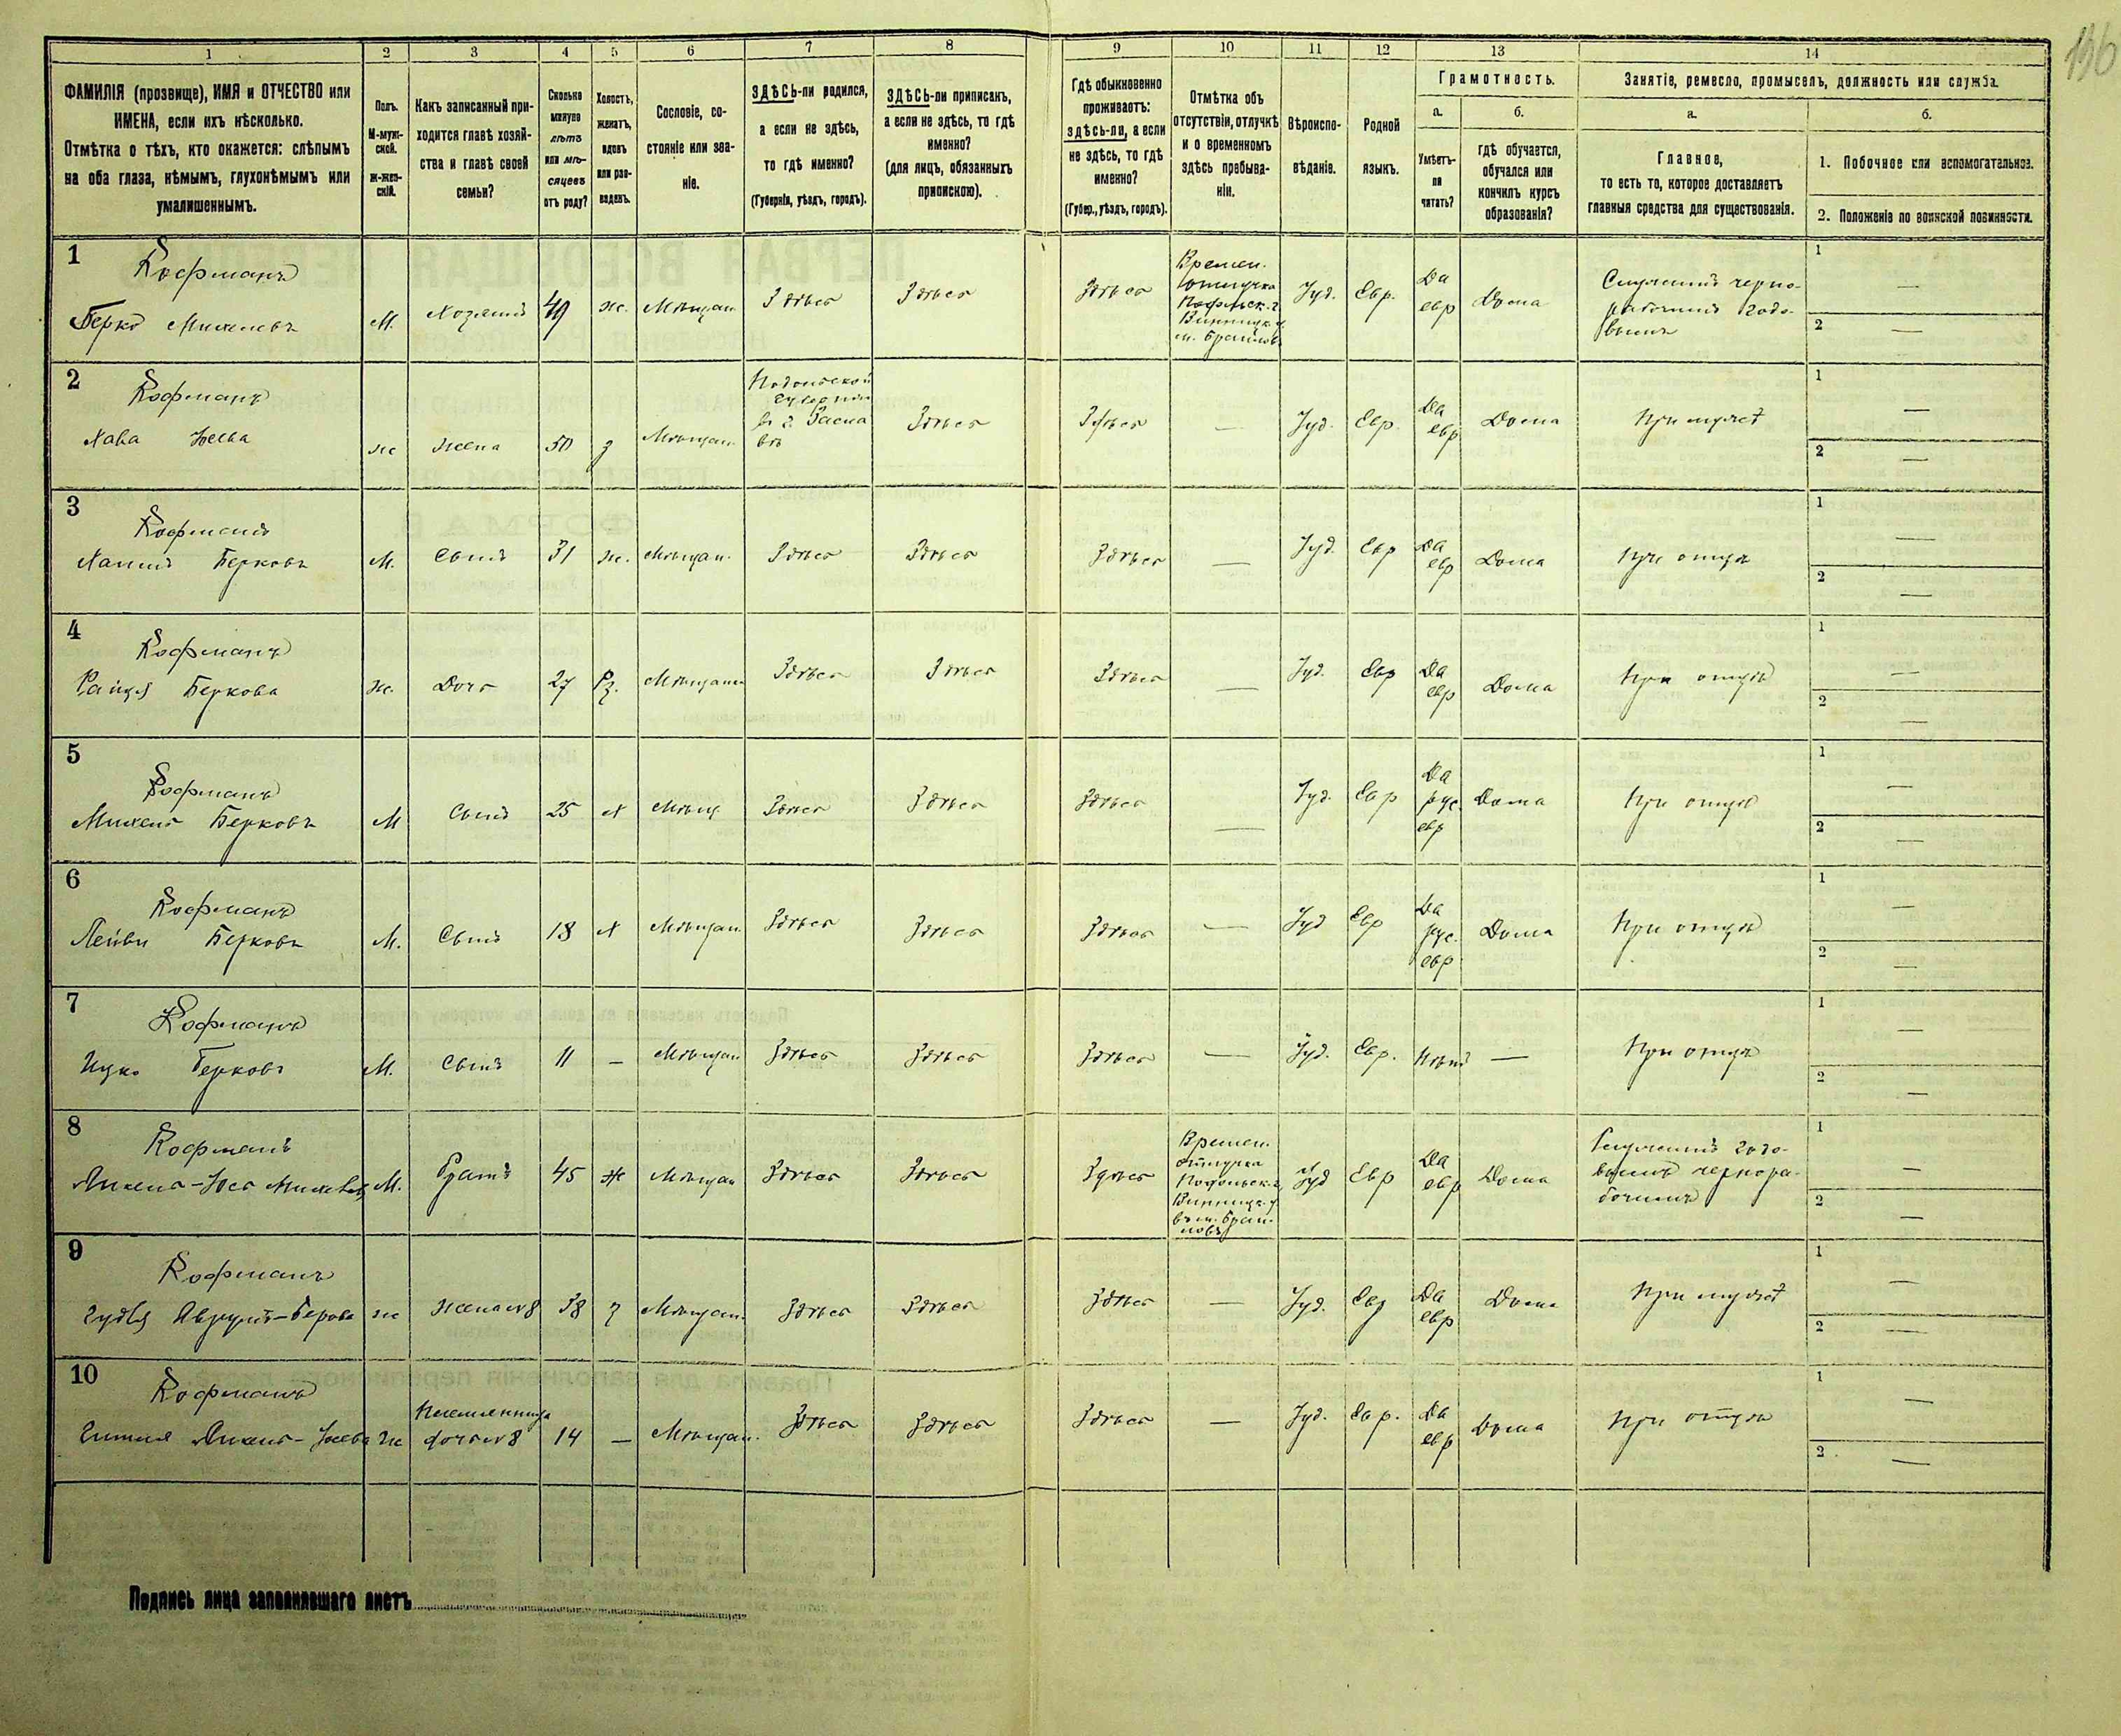 136
1
2
3
4
5
6
7
8
9
10
11
12
13
14
ФАМИЛІЯ (прозвище), ИМЯ и ОТЧЕСТВО или
ИМЕНА, если ихъ нѣсколько.
Отмѣтка о тѣхъ, кто окажется: слѣпымъ
на оба глаза, нѣмымъ, глухонѣмымъ или
умалишеннымъ.
Полъ.
М-муж-
ской.
ж-жен-
скій.
Какъ записанный при-
ходится главѣ хозяй-
ства и главѣ своей
семьи?
Сколько
минуло
лѣтъ
или мѣ-
сяцевъ
отъ роду?
Холостъ,
женатъ,
вдовъ
или раз-
веденъ.
Сословіе, со-
стояніе или зва-
ніе.
ЗДѢСЬ-ли родился,
а если не здѣсь,
то гдѣ именно?
(Губернія, уѣздъ, городъ).
ЗДѢСЬ-ли приписанъ,
а если не здѣсь, то гдѣ
именно?
(для лицъ, обязанныхъ
припискою).
Гдѣ обыкновенно
проживаетъ:
здѣсь-ли, а если
не здѣсь, то гдѣ
именно?
(Губер., уѣздъ, городъ).
Отмѣтка объ
отсутствіи, отлучкѣ
и о временномъ
здѣсь пребыва-
ніи.
Вѣроиспо-
вѣданіе.
Родной
языкъ.
Грамотность.
а.
Умѣетъ-
ли
читать?
б.
гдѣ обучается,
обучался или
кончилъ курсъ
образованія?
Занятіе, ремесло, промыселъ, должность или служба.
а.
Главное,
то есть то, которое доставляетъ
главныя средства для существованія.
б.
1. Побочное или вспомогательное.
2. Положеніе по воинской повинности.
1
Кофманъ
Берко Михелевъ
М. Хозяинъ 49 ж. Мѣщан. Здѣсь Здѣсь Здѣсь
Времен.
отлучка
Подольск. г.
Винницк. у.
м. Браилов
Іуд. Евр. Да
евр Дома
Служащій черно-
рабочимъ годо-
вымъ
1 —
2 —
2
Кофманъ
Хава Іосева
ж жена 50 з Мѣщан.
Подольской
губерніи
въ г. Засла
въ
Здѣсь Здѣсь — Іуд. Евр. Да
евр Дома При мужѣ
1 —
2 —
3
Кофманъ
Хаимъ Берковъ
М. Сынъ 31 ж. Мѣщан. Здѣсь Здѣсь Здѣсь — Іуд. Евр Да
евр Дома При отцѣ
1 —
2 —
4
Кофманъ
Беркова
ж. Дочь 27 Рз. Мѣщанка Здѣсь Здѣсь Здѣсь — Іуд. Евр Да
евр Дома При отцѣ
1 —
2 —
5
Кофманъ
Михель Берковъ
М Сынъ 25 Х Мѣщ Здѣсь Здѣсь Здѣсь — Іуд. Евр Да
рус.
евр Дома При отцѣ
1 —
2 —
6
Кофманъ
Лейви Берковъ
М. Сынъ 18 Х Мѣщан. Здѣсь Здѣсь Здѣсь — Іуд Евр Да
рус.
евр Дома При отцѣ
1 —
2 —
7
Кофманъ
Ицко Берковъ
М. Сынъ 11 — Мѣщан Здѣсь Здѣсь Здѣсь — Іуд. Евр. Нѣтъ — При отцѣ
1 —
2 —
8
Кофманъ
М. Братъ 45 Ж Мѣщан Здѣсь Здѣсь Здѣсь
Времен.
отлучка
Подольск. г.
Винницк. у.
въ м. Браи-
ловѣ
Іуд Евр Да
евр Дома
Служащій годо-
вымъ чернора-
бочимъ
1 —
2 —
9
Кофманъ
ж жена № 8 38 з Мѣщан. Здѣсь Здѣсь Здѣсь — Іуд. Евр Да
евр Дома При мужѣ
1 —
2 —
10
Кофманъ
ж Племянница
дочь № 8 14 — Мѣщан. Здѣсь Здѣсь Здѣсь — Іуд. Евр. Да
евр Дома При отцѣ
1 —
2 —
Подпись лица заполнившаго листъ